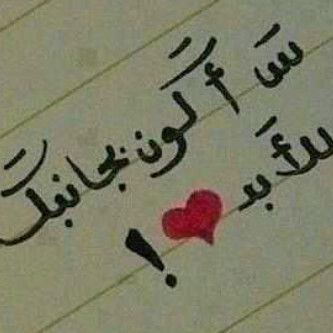 سَأكون بجانبَك
للأبَد !